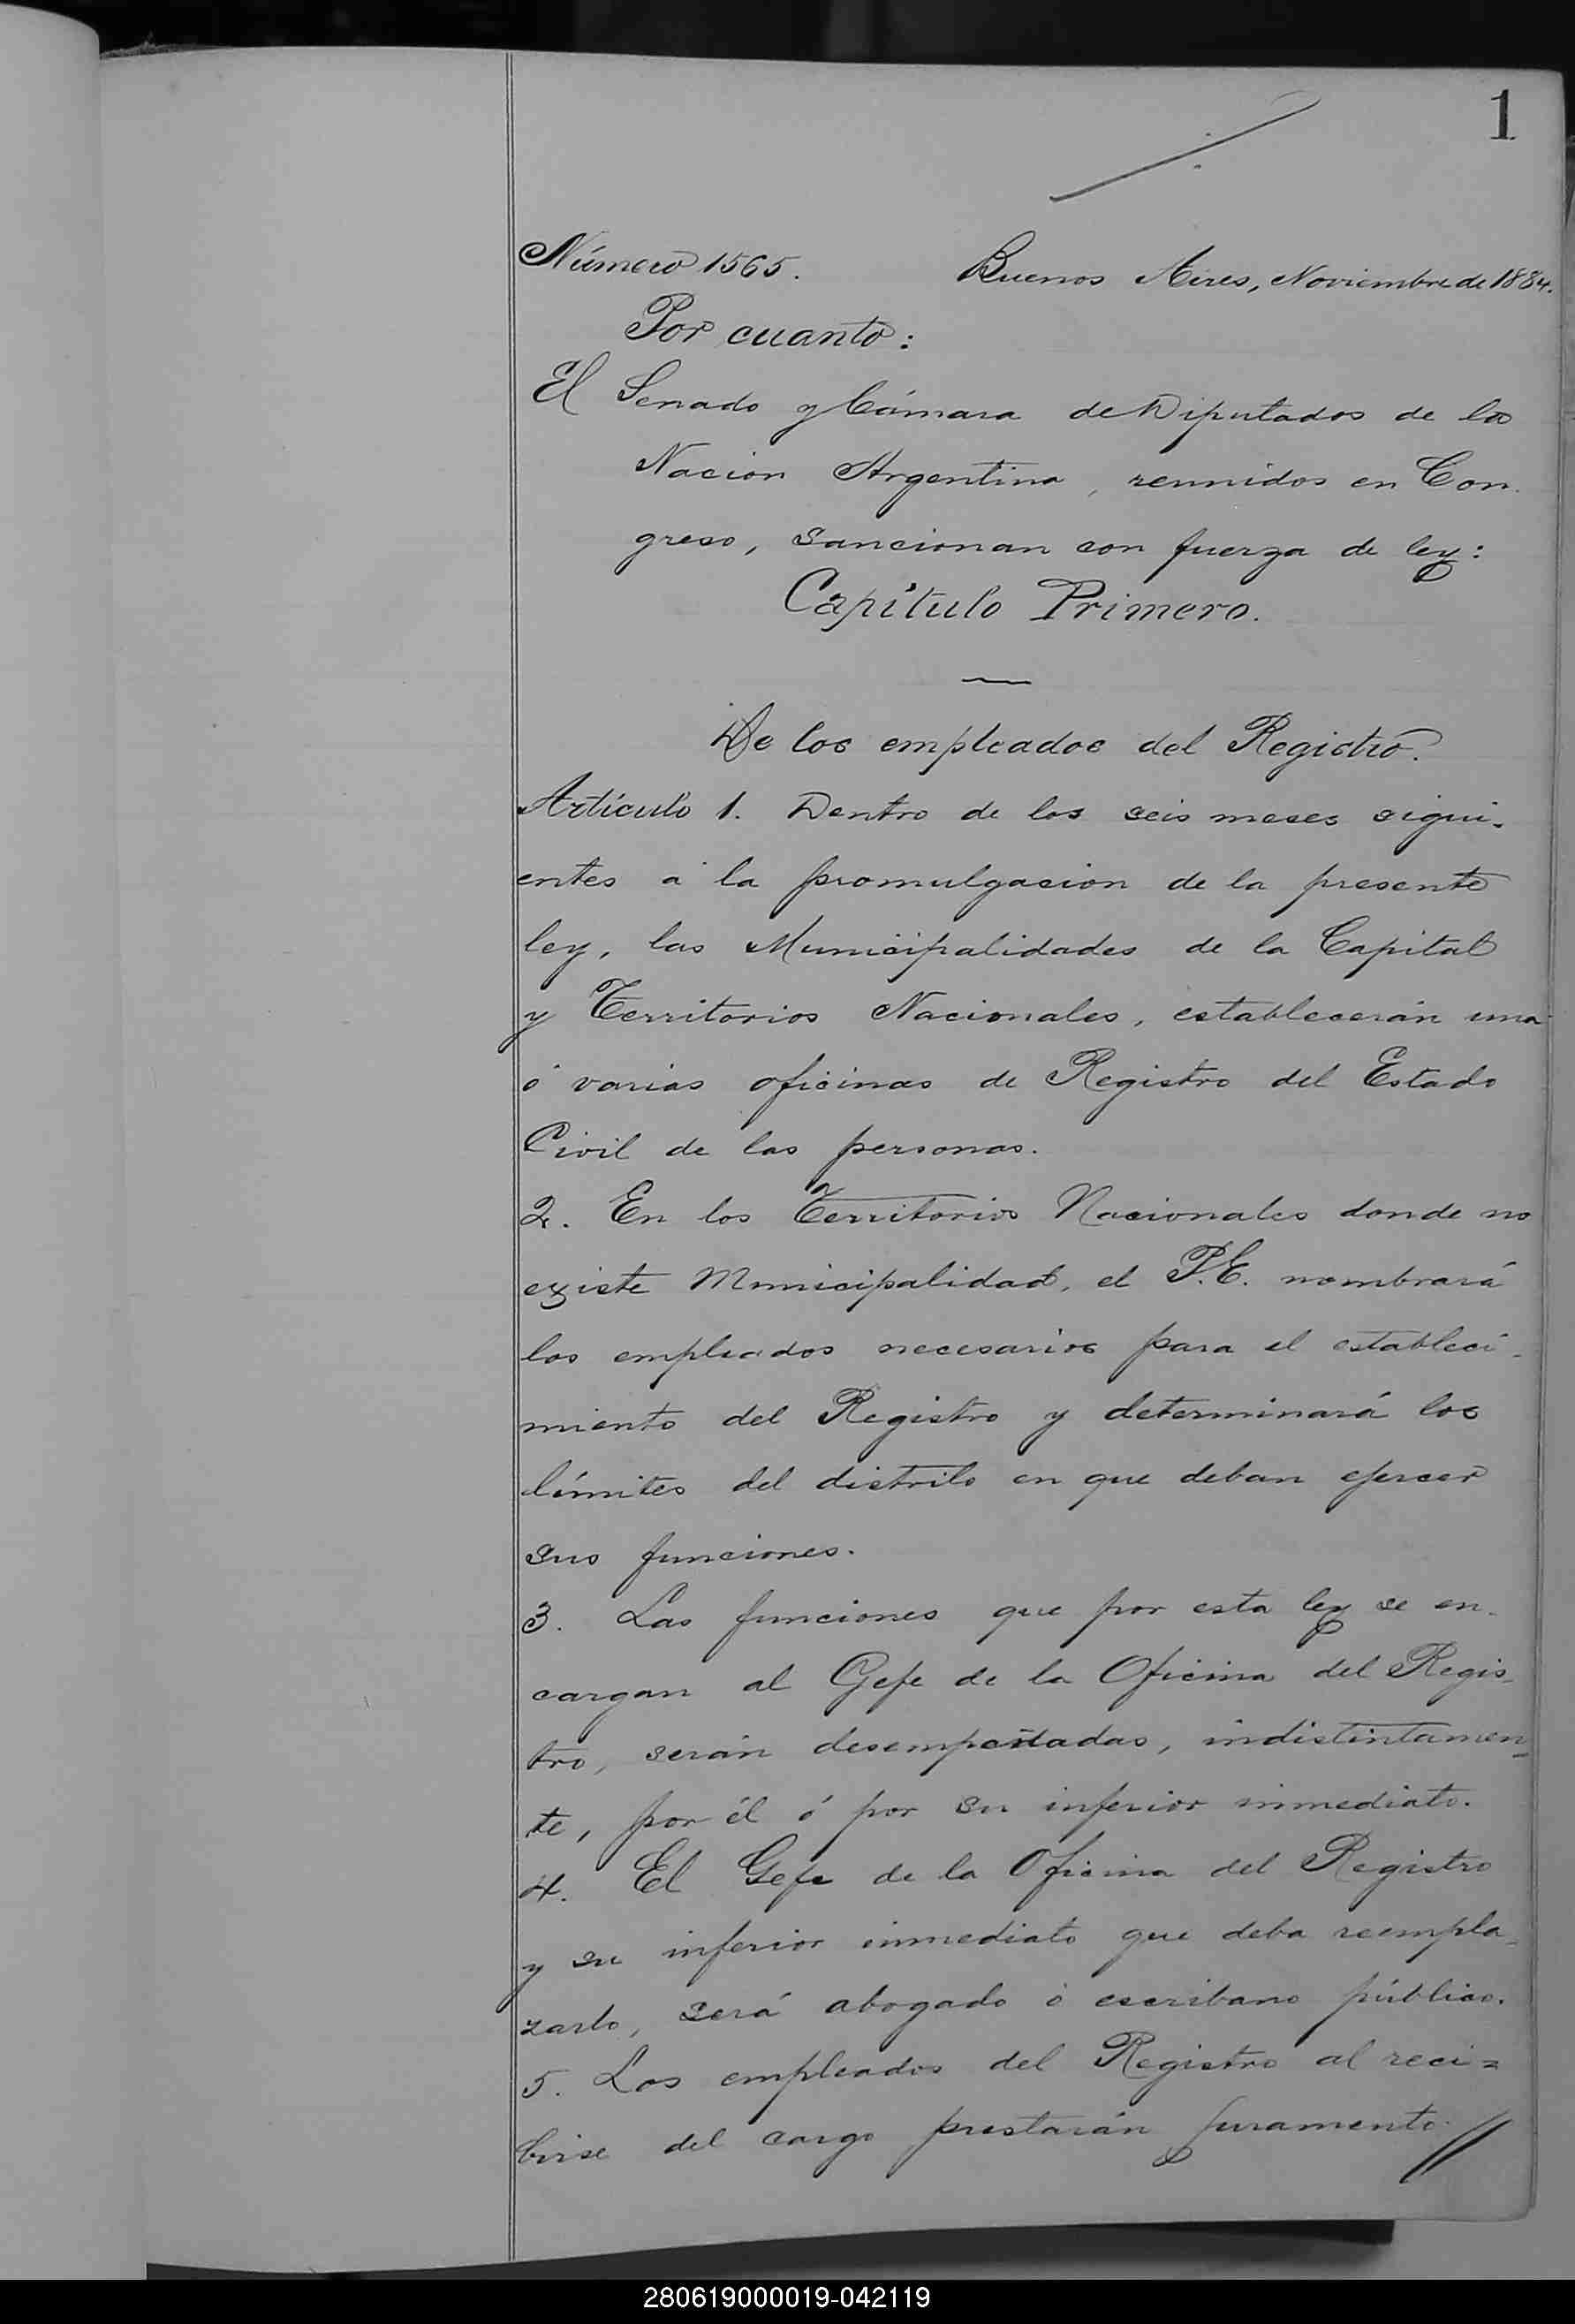 1
Número 1565. Buenos Aires, Noviembre de 1884.
Por cuanto:
El Senado y Cámara de Diputados de la
Nacion Argentina, reunidos en Con-
greso, sancionan con fuerza de ley:
Capítulo Primero.
De los empleados del Registro.
Artículo 1. Dentro de los seis meses sigui-
entes á la promulgacion de la presente
ley, las Municipalidades de la Capital
y Territorios Nacionales, establecerán una
ó varias oficinas de Registro del Estado
Civil de las personas.
2. En los Territorios Nacionales donde no
existe Municipalidad, el P.E. nombrará
los empleados necesarios para el estableci-
miento del Registro y determinará los
límites del distrito en que deban ejercer
sus funciones.
3. Las funciones que por esta ley se en-
cargan al Gefe de la Oficina del Regis-
tro, serán desempeñadas, indistintamen-
te, por él ó por su inferior inmediato.
4. El Gefe de la Oficina del Registro
y su inferior inmediato que deba reempla-
zarlo, será abogado ó escribano público.
5. Los empleados del Registro al reci=
birse del cargo prestarán juramento //
280619000019-042119